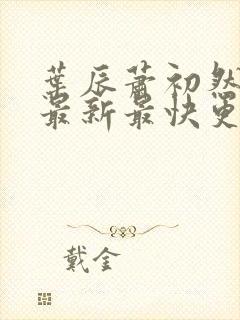 葉辰蕭初然
最新最快更
戴金